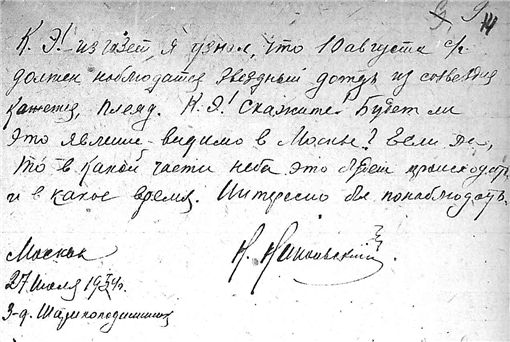 9 14
К. Э! из газет я узнал, что 10 августа с/г.
должен наблюдатся звездный дождь из созвездия
кажется, Плеяд. К. Э! Скажите! Будет ли
это явление видимо в Москве? Если да,
то в какой части неба это будет происходить
и в какое время. Интересно бы понаблюдать.
Москва
27 июля 1934г.
3-д. Шарикоподшипник